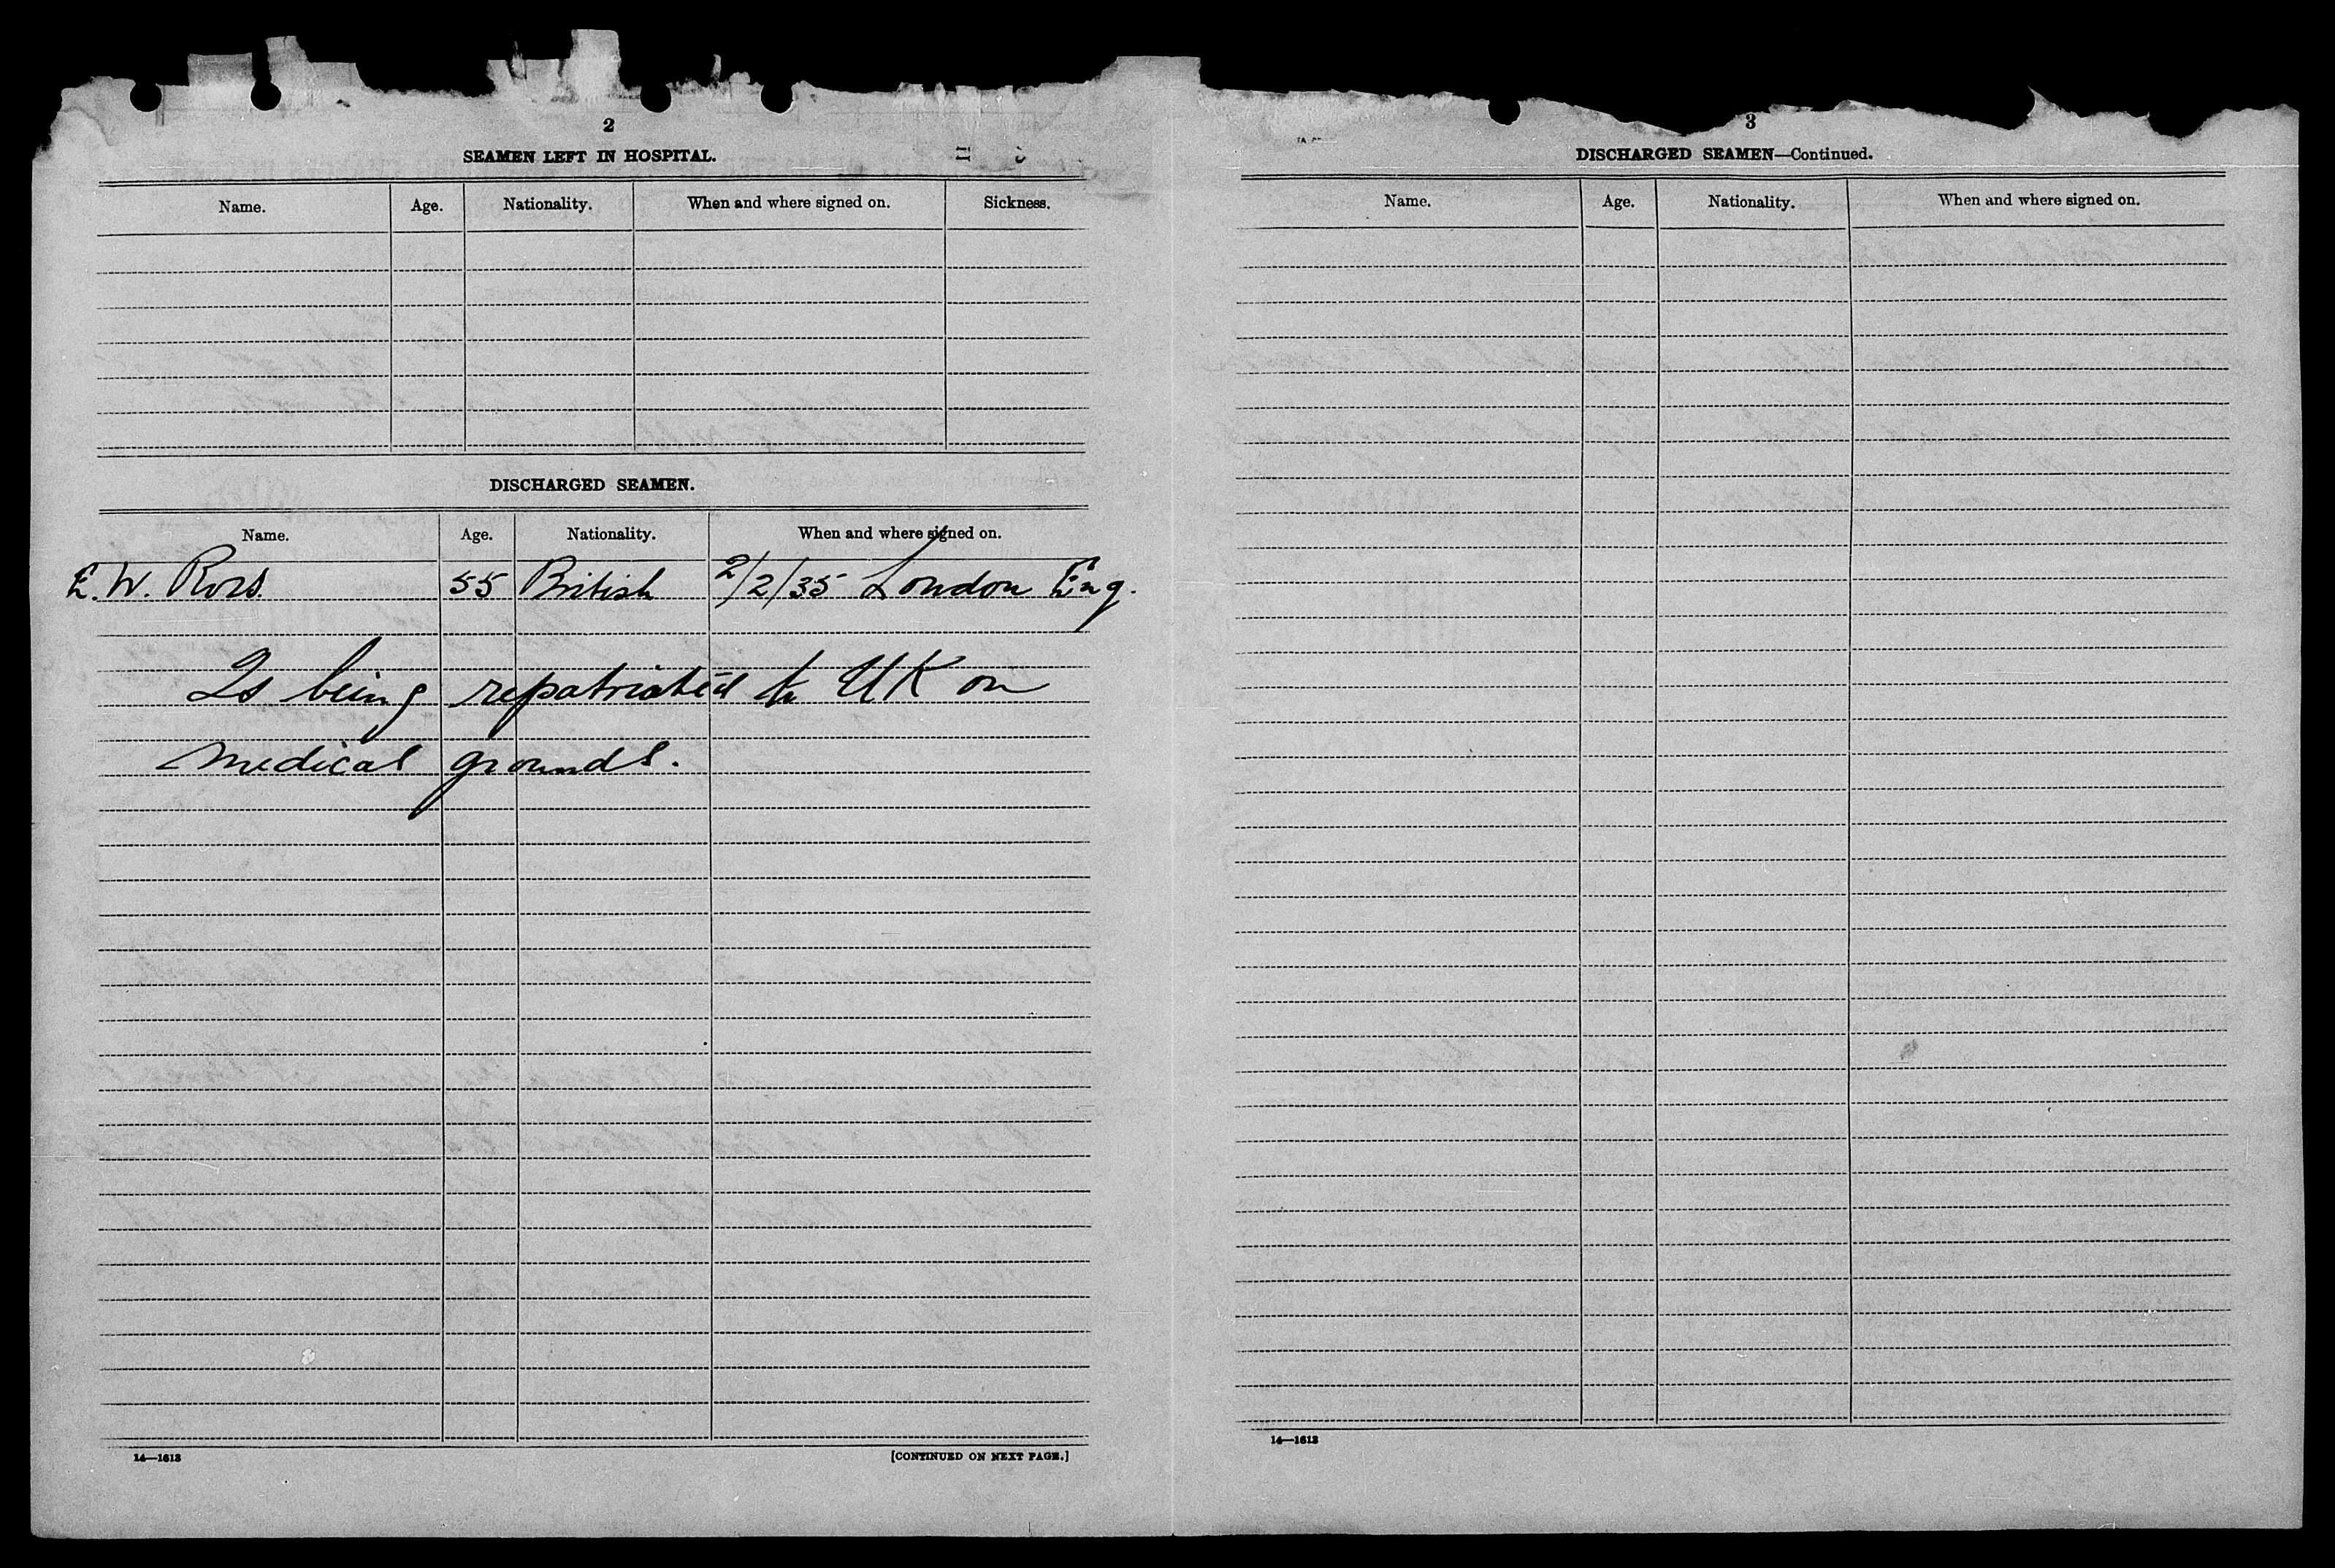 2
SEAMEN LEFT IN HOSPITAL.
Name. Age. Nationality. When and where signed on. Sickness.
DISCHARGED SEAMEN.
Name. Age. Nationality. When and where signed on.
E. W. Ross 55 British 2/2/35 London Eng.
Is being repatriated to UK on
medical grounds.
14—1613 [CONTINUED ON NEXT PAGE.]
3
DISCHARGED SEAMEN—Continued.
Name. Age. Nationality. When and where signed on.
14—1613